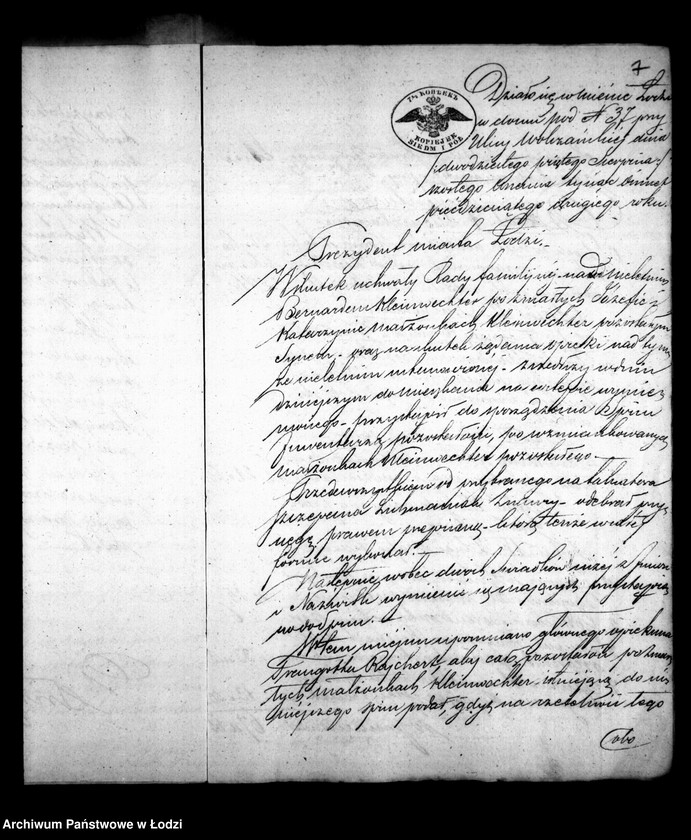 7
7½ КОПѢЕКЪ
KOPIEJEK
SIEDM I PÓŁ
Działo się w mieście Łodzi
w domu pod N 37 przy
Ulicy Wólczańskiej dnia
dwudziestego piątego Sierpnia
tysiąc ośmset
pięćdziesiątego drugiego roku.
Prezydent miasta Łodzi.
Wskutek uchwały Rady familijnej nad nieletnim
Bernardem Kleinwechter po zmarłych Józefie i
Katarzynie małżonkach Kleinwechter pozostałym
Synem - oraz na skutek żądania opieki nad tym
że nieletnim ustanowionej - w dniu
dzisiejszym do mieszkania na wstępie wymie
nionego - przystąpił do sporządzenia Spisu
Inwentarza pozostałości, po wzmiankowanych
małżonkach Kleinwechter pozostałego -
Przedewszystkiem od wybranego na taksatora
Szczepana odebrał przy
sięgę prawem przepisaną - którą tenże w całej
formie wykonał.
Następnie wobec dwóch Świadków niżej z Imion
i Nazwisk wymienić się mających przystąpiono
W tem miejscu upomniano głównego opiekuna
Rajchert, aby całą pozostałość po zmar
łych małżonkach Kleinwechter istniejącą do ni
niejszego spisu podał, gdyż na rzetelność tego
obo
Archiwum Państwowe w Łodzi